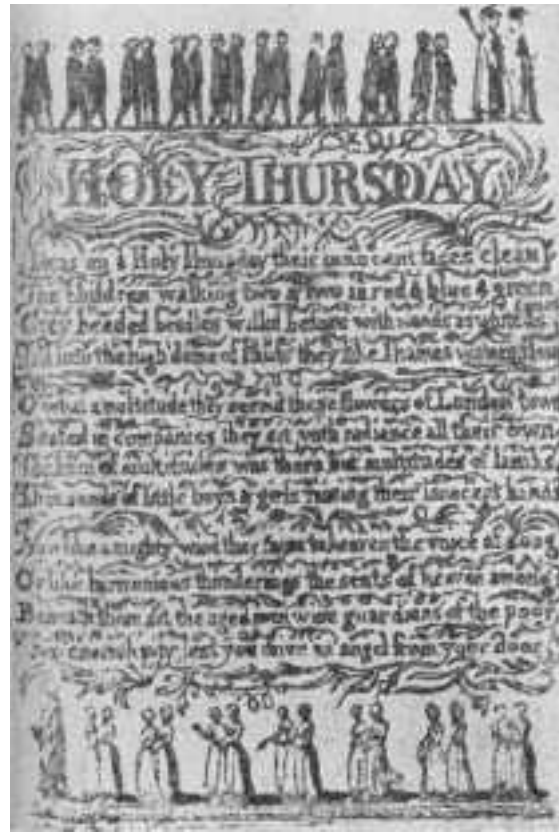 HOLY THURSDAY
Twas on a Holy Thursday their innocent faces clean
The children walking two & two in red & blue & green
Grey headed beadles walkd before with wands as white
Till into the high dome of Pauls they like Thames waters flow
O what a multitude they seemd these flowers of London town
Seated in companies they sit with radiance all their own
The hum of multitudes was there but multitudes of lambs
Thousands of little boys & girls raising their innocent hands
Now like a mighty wind they raise to heaven the voice of song
Or like harmonious thunderings the seats of heaven among
Beneath them sit the aged men wise guardians of the poor
Then cherish pity lest you drive an angel from your door